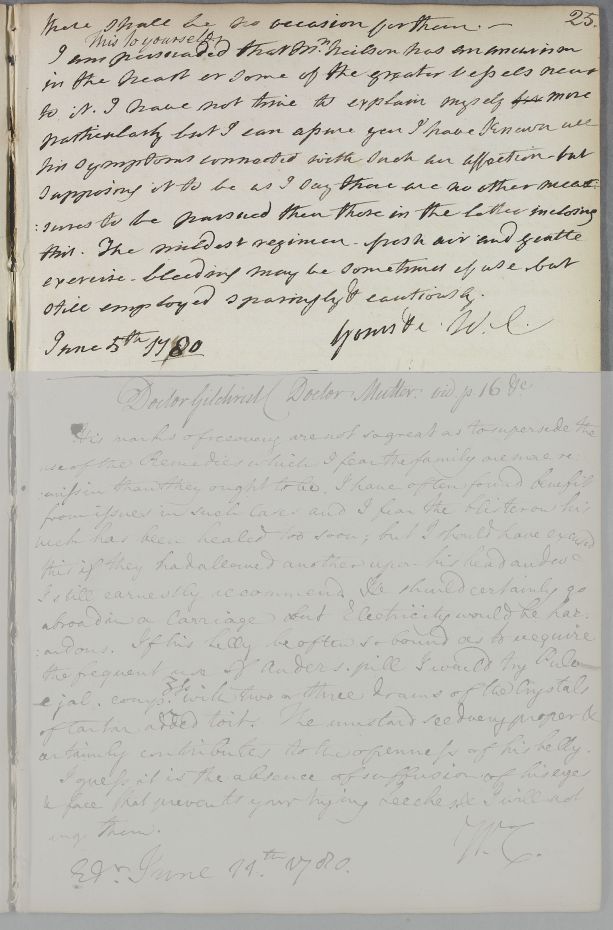 there shall be no occasion for them. — 25.
This to yourself
I am persuaded that Mr. Neilson has an aneurism
in the heart or some of the greater vessels near
to it. I have not time to explain myself more
particularly but I can assure you I have known all
his symptoms connected with such an affection but
supposing it to be as I say there are no other mea:
:sures to be pursued then those in the letter inclosing
this. The mildest regimen - fresh air and gentle
exercise. bleeding may be sometimes of use but
still employed sparingly & cautiously.
Yours &c. W.C.
June 5th 1780
Doctor Gilchrist ( Doctor Mutter. vid. p 16 &c
His marks of recovery are not so great as to supersede the
use of the Remedies which I fear the family are more re:
:miss in than they ought to be. I have often found benefit
from issues in such cases and I fear the blister on his
neck has been healed too soon; but I should have excused
this if they had allowed another upon his head and wc
I still earnestly recommend. He should certainly go
abroad in a Carriage but Electricity would be haz:
:ardous. If his belly be often so bound as to require
the frequent use of Anders. pill I would try Pulv
e jal. comp. ʒſs with two or three drams of the Crystals
of tartar added to it. The mustard seed very proper &
certainly contributes to the openness of his belly.
I guess it is the absence of suffusion of his eyes
& face that prevents your trying Leeches & I will not
urge them.
W.C.
Edr. June 11.th 1780.